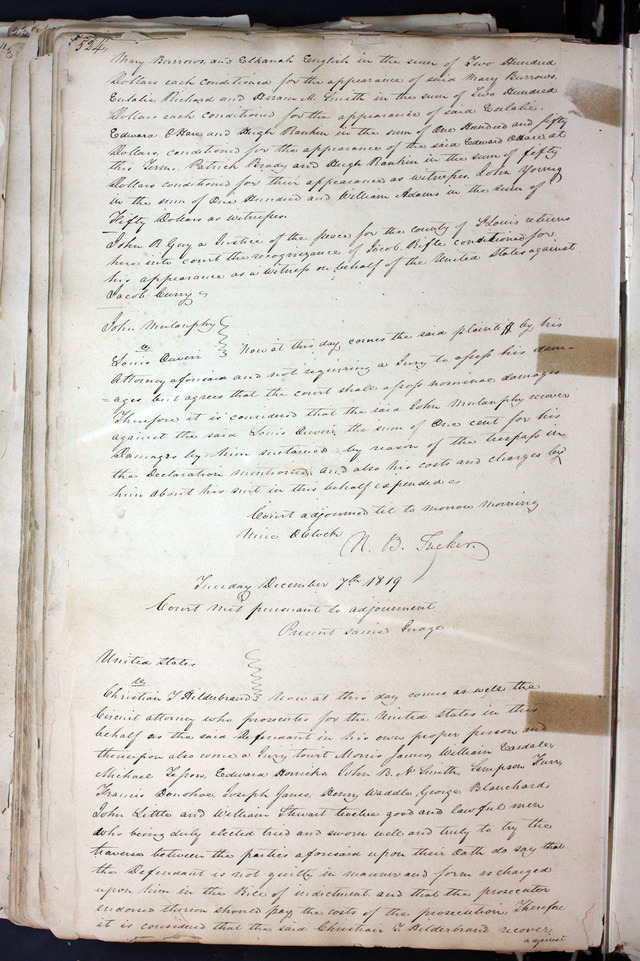 524
Mary Burrows, and Elkanah English in the sum of Two Hundred
Dollars each conditioned for the appearance of said Mary Burrows.
Eulalie Richard and Hiram M. Smith in the sum of Two Hundred
Dollars each conditioned for the appearance of said Eulalie.
Edward OHare and Hugh Rankin in the sum of One Hundred and fifty
Dollars, conditioned for the appearance of the said Edward OHare at
this Term. Patrick Brady and Hugh Rankin in the sum of fifty
Dollars conditioned for their appearance as witnesses, John Young
in the sum of One Hundred and William Adams in the sum of
Fifty Dollars as witnesses.
John B Guy a Justice of the peace for the county of St Louis returns
here into court the recognizance of Jacob conditioned for
his appearance as a witness on behalf of the United States against
Jacob Curry
John Mulanphy
vs
Louis Now at this day comes the said plaintiff by his
Attorney aforesaid and not requiring a Jury to assess his dam-
=ages but agrees that the court shall assess nominal damages
Therefore it is considered that the said John Mulanphy recover
against the said Louis the sum of One cent for his
Damages by him sustained by reason of the trespass in
the Declaration mentioned; and also his costs and charges by
him about his suit in this behalf expended
Court adjourned til to morrow morning
Nine OClock
N. B. Tucker
Tuesday December 7th 1819
Court met pursuant to adjournment
Present same Judge
United States
vs
Christian T Hilderbrand Now at this day comes as well the
Circuit attorney who prosecutes for the United States in this
behalf as the said Defendant in his own proper person and
thereupon also come a Jury towit Morris James, William
Michael Edward John B. N. Smith, Sampson
Francis Donohoe Joseph Jones, Henry Waddle, George Blanchard,
John Little and William Stewart twelve good and lawful men
who being duly elected tried and sworn well and truly to try the
traverse between the parties aforesaid upon their Oath do say that
the Defendant is not guilty in manner and form as charged
upon him in the Bill of indictment and that the prosecutor
endorsed thereon should pay the costs of the prosecution, Therefore
it is considered that the said Christian T. Hilderbrand recover
against